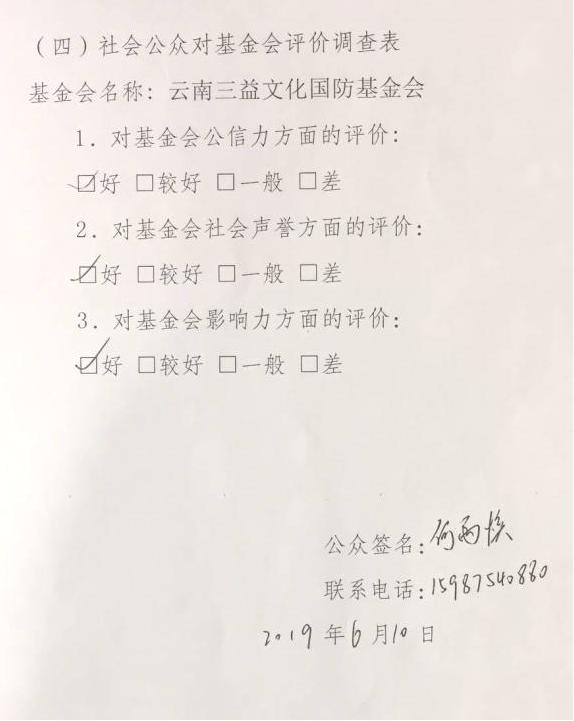 （四）社会公众对基金会评价调查表
基金会名称：云南三益文化国防基金会
1．对基金会公信力方面的评价：
☑好 □较好 □一般 □差
2．对基金会社会声誉方面的评价：
☑好 □较好 □一般 □差
3．对基金会影响力方面的评价：
☑好 □较好 □一般 □差
公众签名：何雨
联系电话：15987540880
2019年6月10日